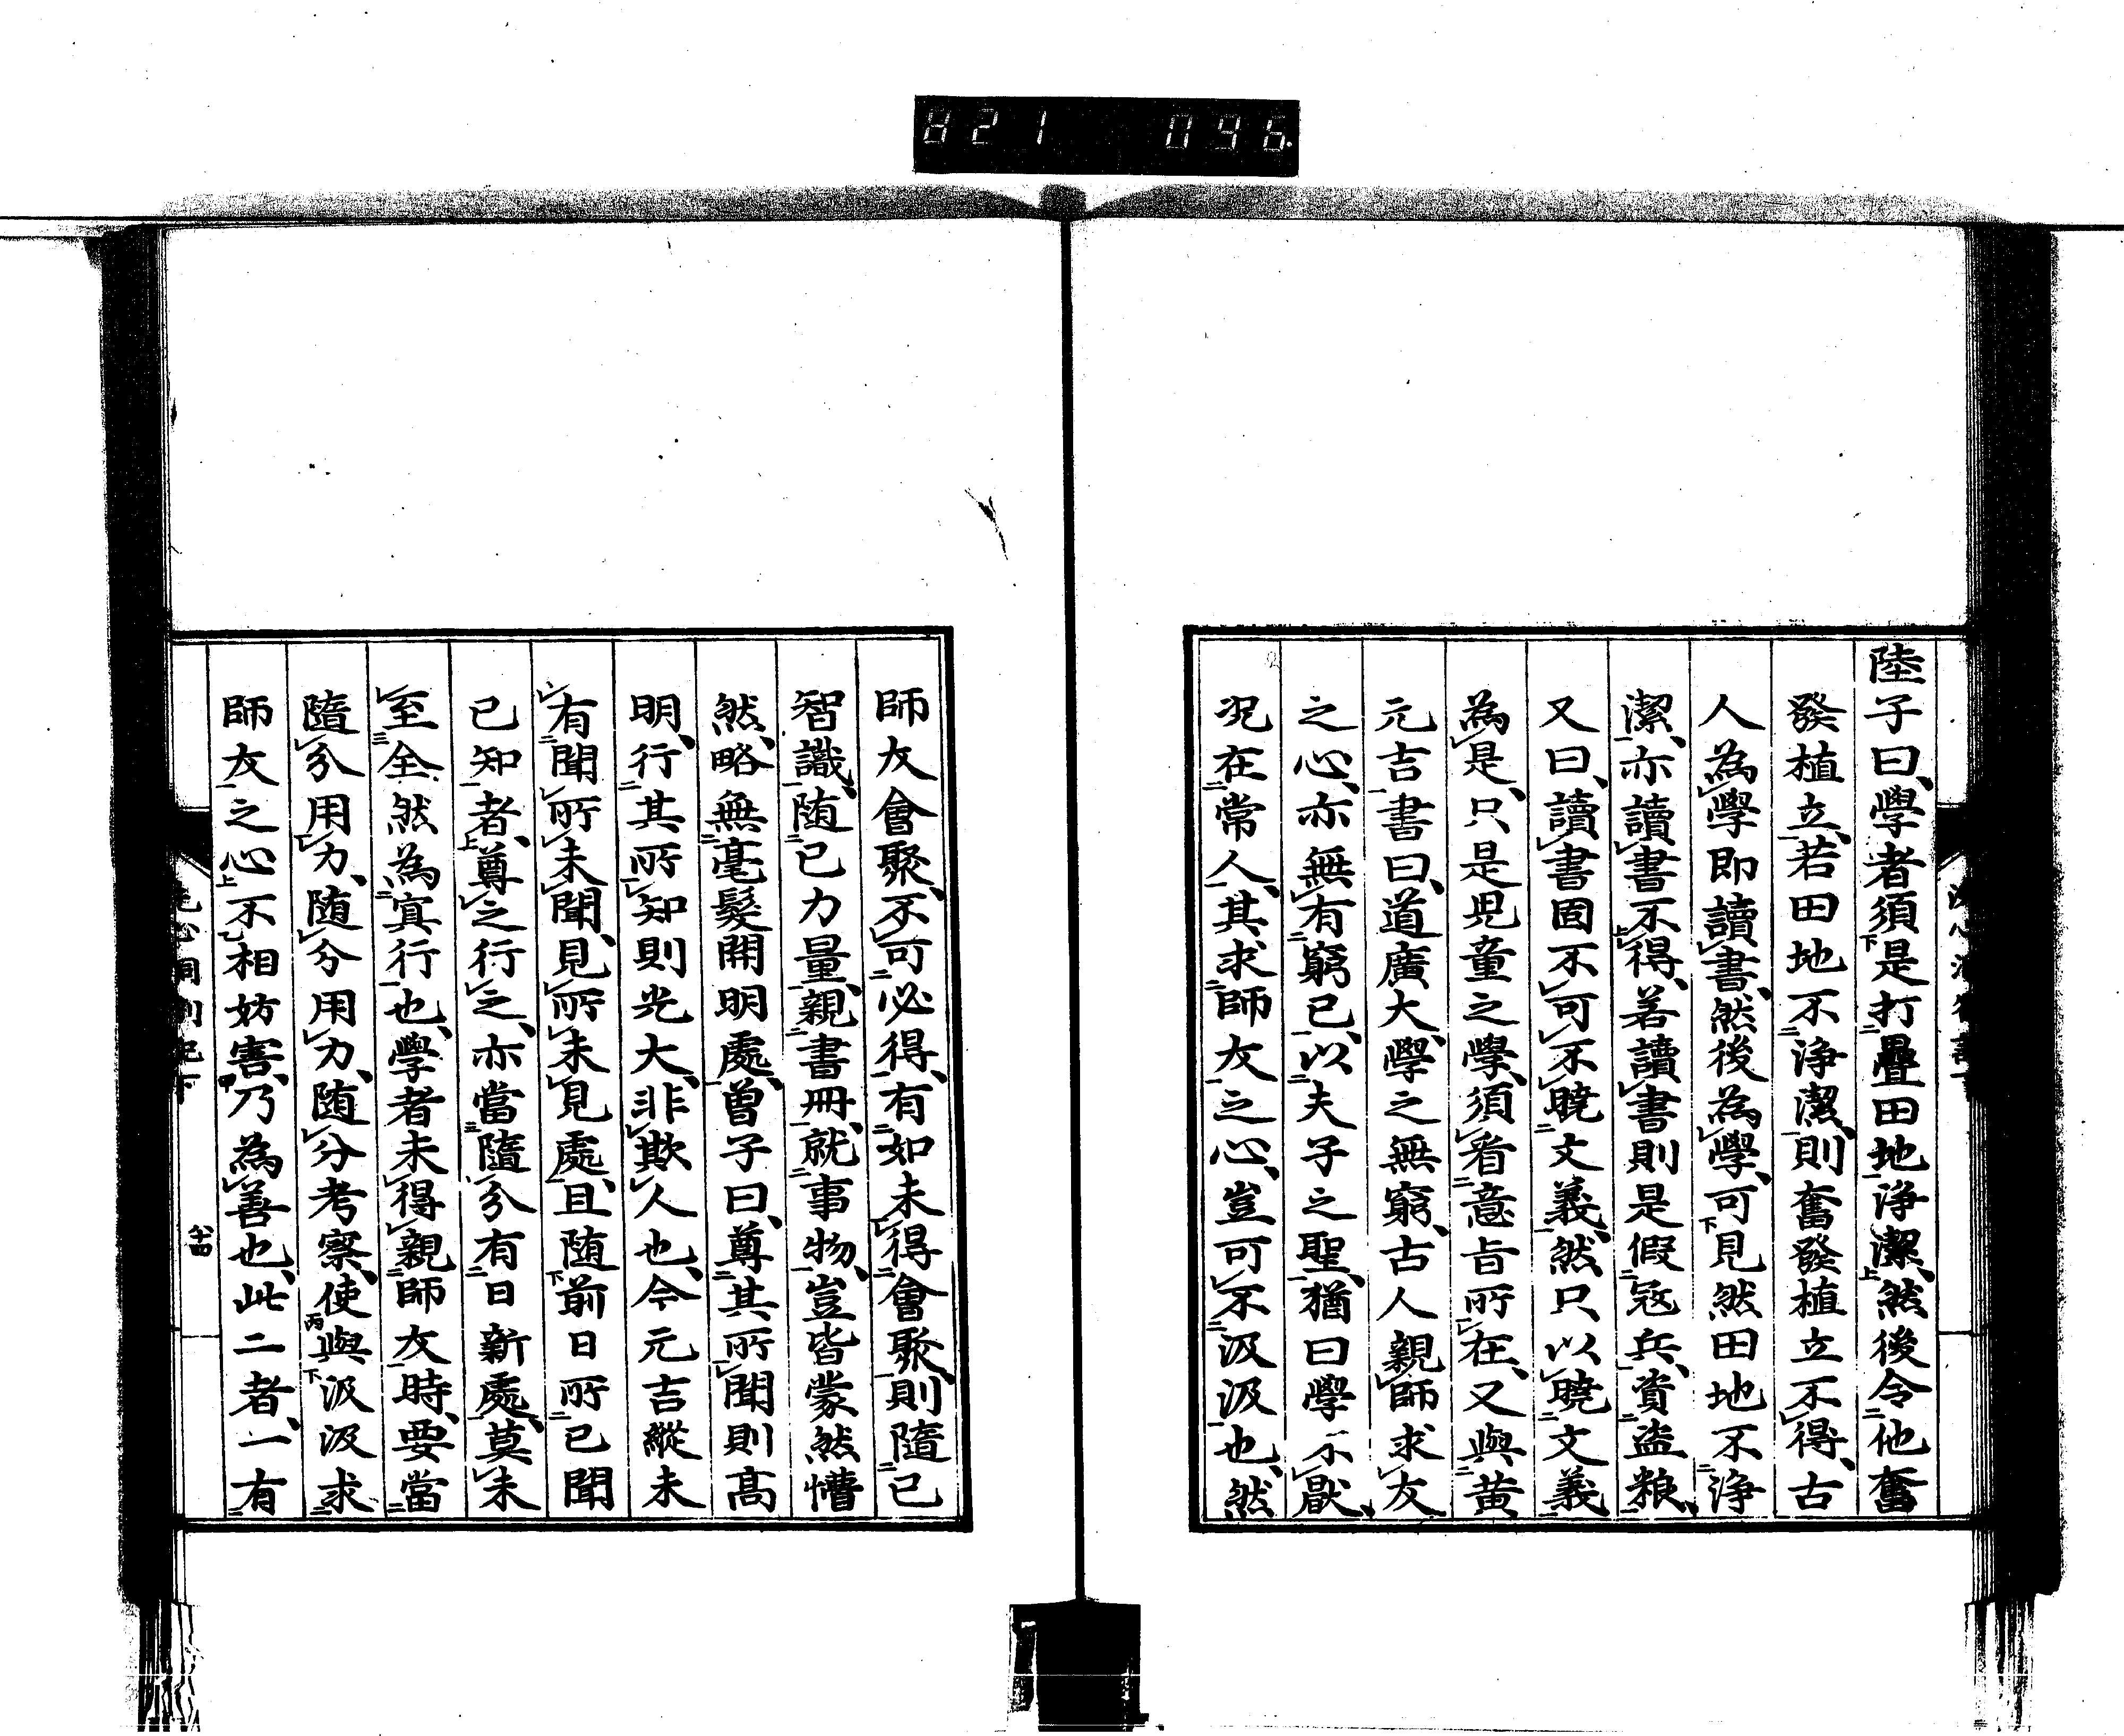 821 096.
陸子曰、學者須是打疊田地淨潔、然後令他奮
發植立、若田地不淨潔、則奮發植立不得、古
人為學即讀書、然後為學、可見然田地不淨
潔、亦讀書不得、若讀書則是假寇兵、資盜粮、
又曰、讀書固不可不曉文義、然只以曉文義
為是、只是兒童之學、須看意旨所在、又與黃
元吉書曰、道廣大、學之無窮、古人親師求友
之心、亦無有窮已、以夫子之聖、猶曰學不厭、
況在常人、其求師友之心、豈可不汲汲也、然
師友會聚、不可必得、有如未得會聚、則隨已
智識、随已力量、親書冊、就事物、豈皆蒙然懵
然、略無毫髮開明處、曾子曰、尊其所聞則高
明、行其所知則光大、非欺人也、今元吉縱未
有聞所未聞、見所未見處、且随前日所已聞
已知者、尊之行之、亦當隨分有日新處、莫未
至全然為冥行也、學者未得親師友時、要當
隨分用力、随分用力、随分考察、使與汲汲求
師友之心不相妨害、乃為善也、此二者、一有
洗心洞劄記下
八十四